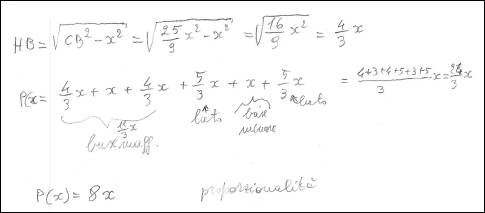 HB = √(CB² - x²) = √(25/9 x² - x²) = √(16/9 x²) = 4/3 x
P(x) = 4/3 x + x + 4/3 x + 5/3 x + x + 5/3 x = (4+3+4+5+3+5)/3 x = 24/3 x
11/3 x
lato base lato
base magg. minore
P(x) = 8x proporzionalità